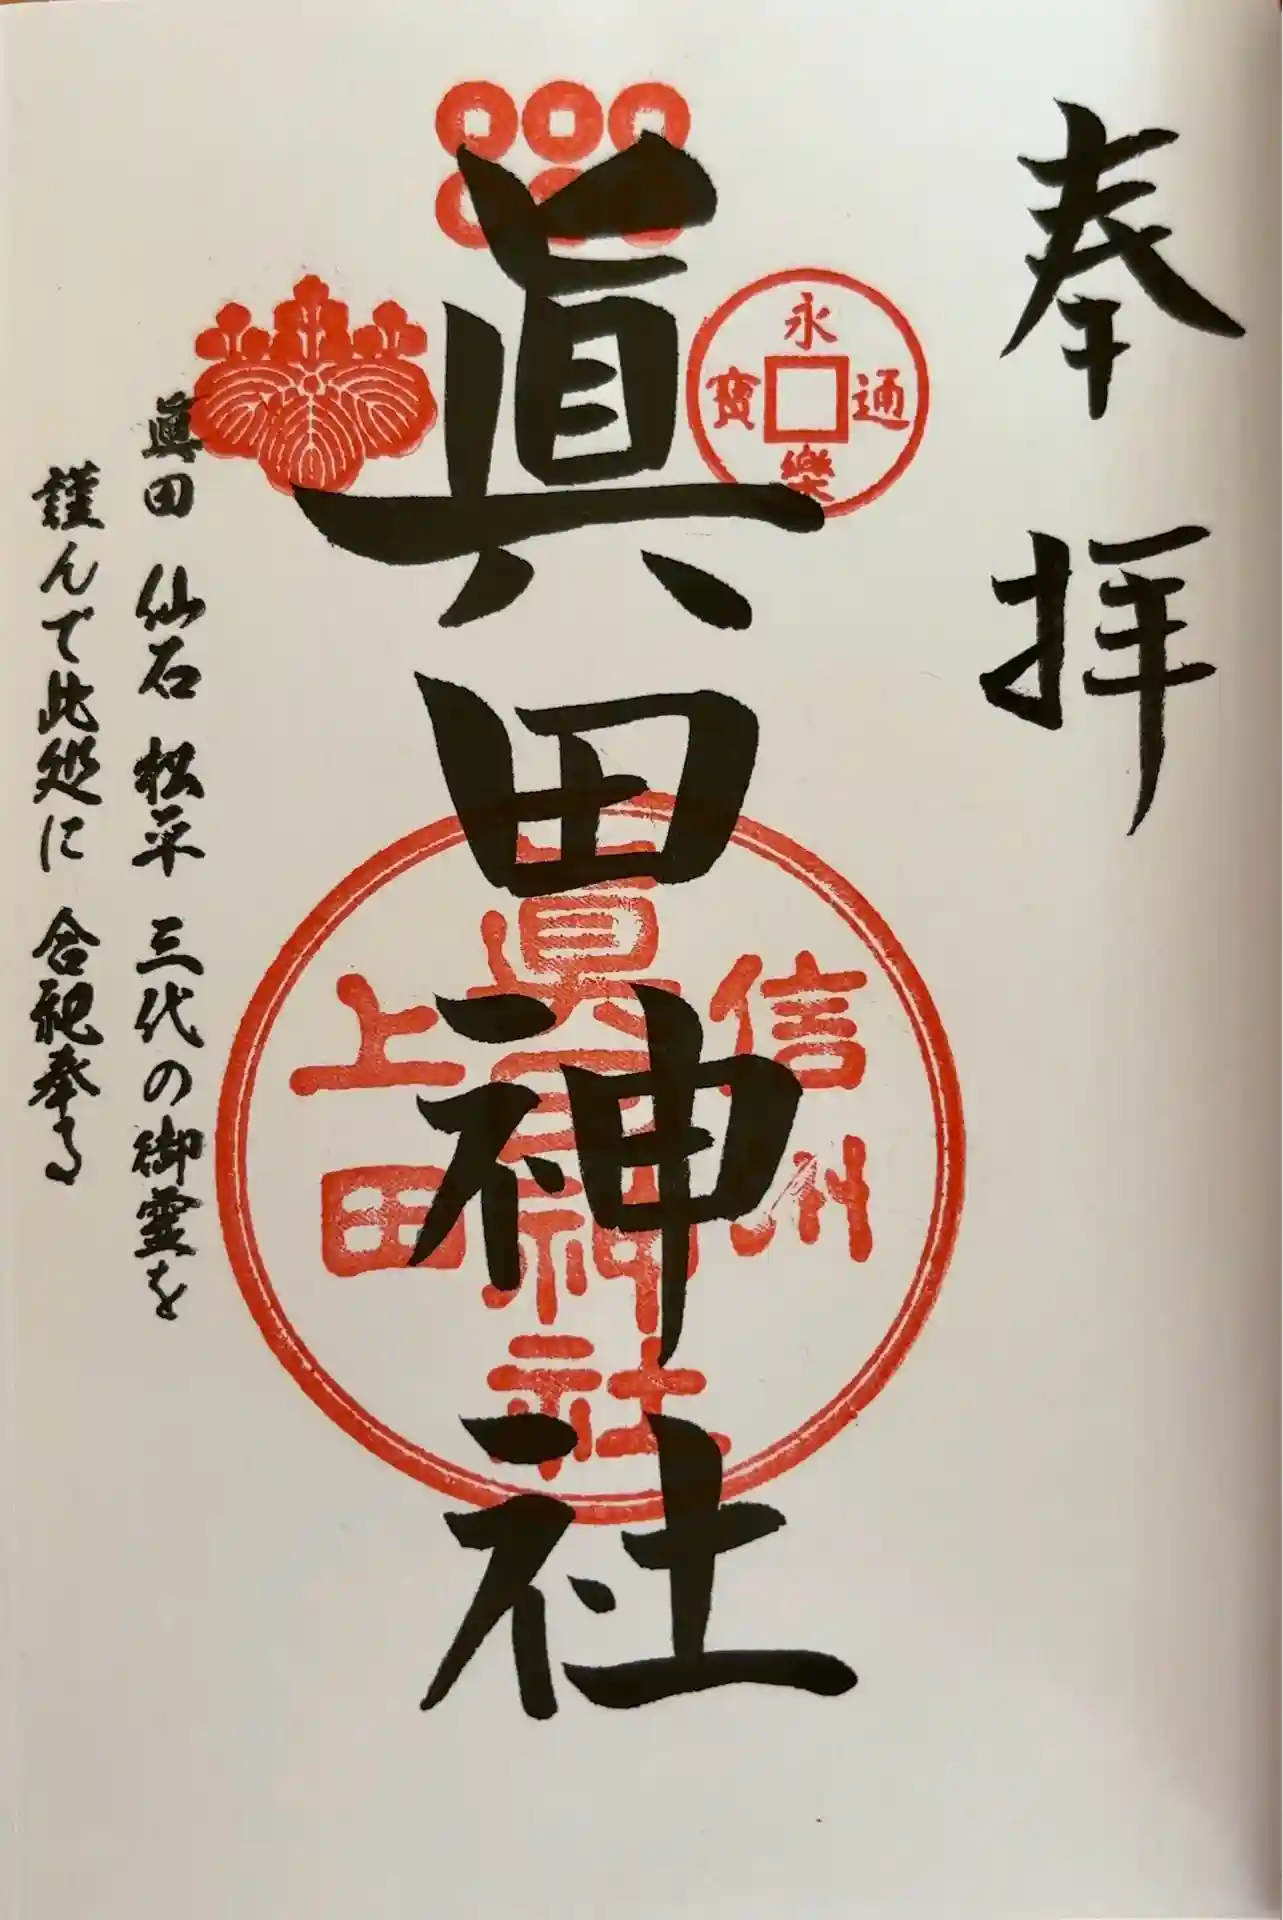 奉拝
永樂通寶
眞田神社
信州
眞田神社
上田
眞田 仙石 松平 三代の御霊を
謹んで此処に 合祀奉る